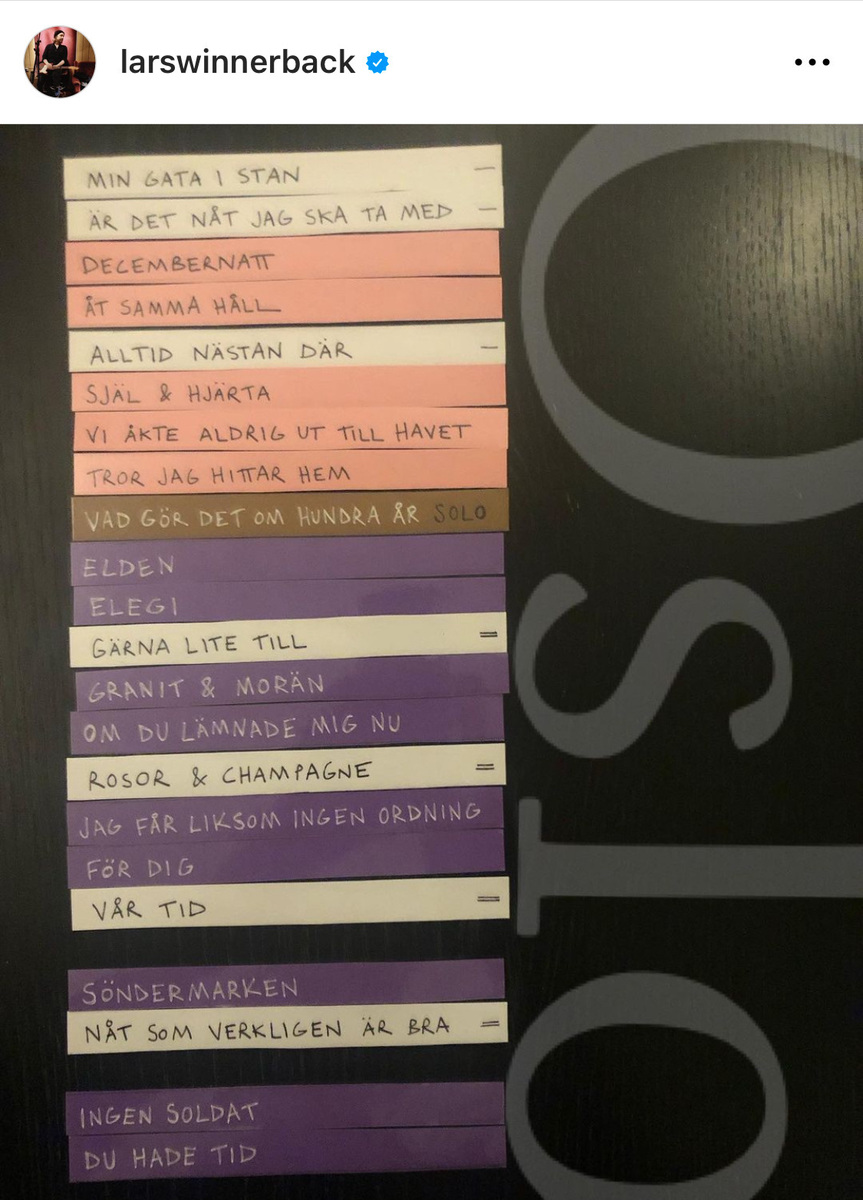 larswinnerback
MIN GATA I STAN
ÄR DET NÅT JAG SKA TA MED
DECEMBERNATT
ÅT SAMMA HÅLL
ALLTID NÄSTAN DÄR
SJÄL & HJÄRTA
VI ÅKTE ALDRIG UT TILL HAVET
TROR JAG HITTAR HEM
VAD GÖR DET OM HUNDRA ÅR SOLO
ELDEN
ELEGI
GÄRNA LITE TILL
GRANIT & MORÄN
OM DU LÄMNADE MIG NU
ROSOR & CHAMPAGNE
JAG FÅR LIKSOM INGEN ORDNING
FÖR DIG
VÅR TID
SÖNDERMARKEN
NÅT SOM VERKLIGEN ÄR BRA
INGEN SOLDAT
DU HADE TID
OSLO